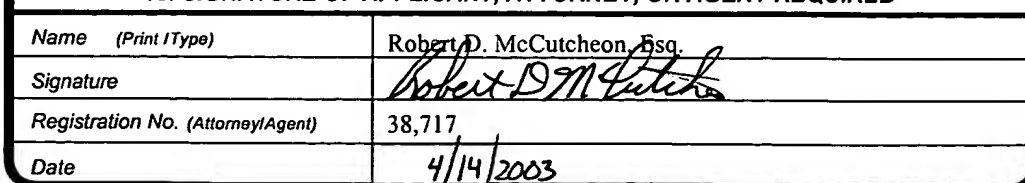 Name (Print /Type) Robert D. McCutcheon, Esq.
Signature Robert D McCutcheon
Registration No. (Attorney/Agent) 38,717
Date 4/14/2003